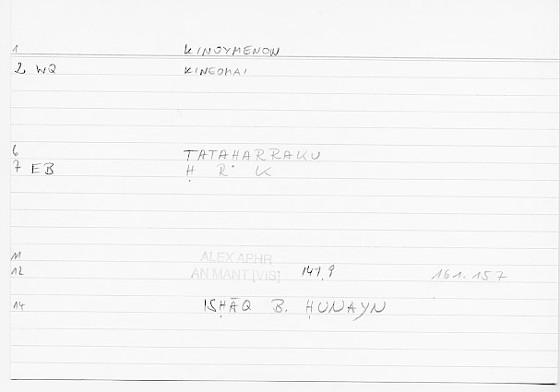 1 KINOYMENON
2 WQ KINEOMAI
6 TATAHARRAKU
7 EB Ḥ R K
11 ALEX APHR
12 AN.MANT.[VIS] 141,9 161.157
14 ISḤĀQ B. ḤUNAYN